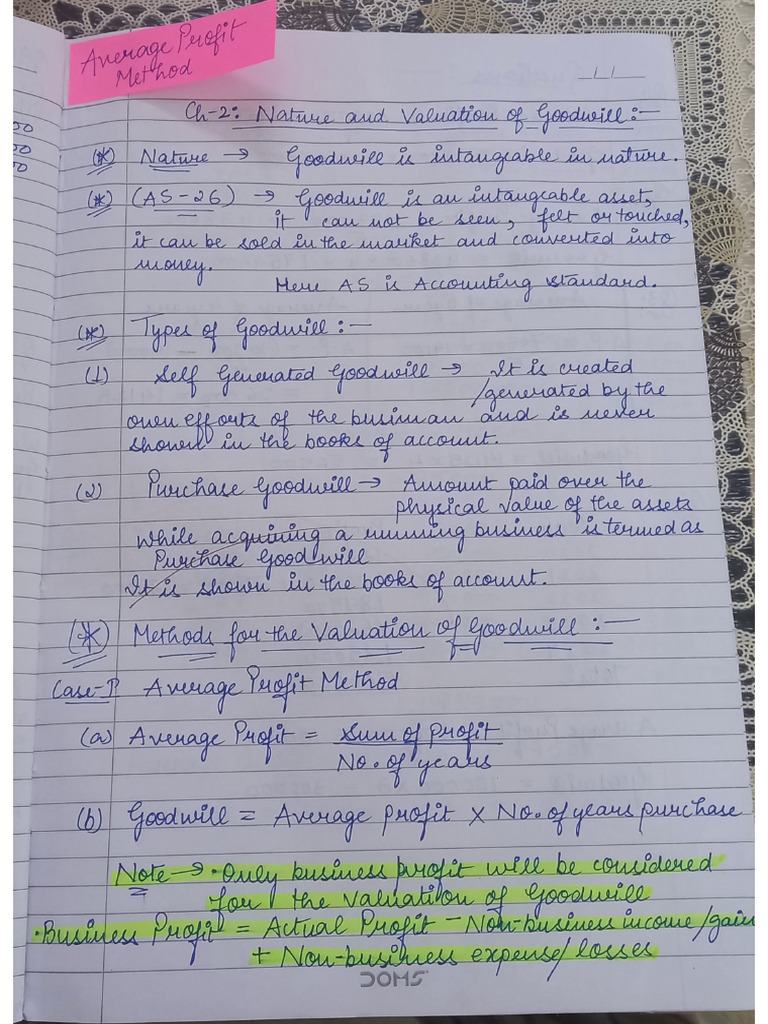 Average Profit
Method
Ch-2: Nature and Valuation of Goodwill:-
(*) Nature → Goodwill is intangeable in nature.
(*) (AS-26) → Goodwill is an intangeable asset,
it can not be seen, felt or touched,
it can be sold in the market and converted into
money.
Here AS is Accounting standard.
(*) Types of Goodwill:-
(1) Self Generated Goodwill → It is created
/generated by the
own efforts of the businman and is never
shown in the books of account.
(2) Purchase Goodwill → Amount paid over the
physical value of the assets
while acquining a running business is termed as
Purchase Goodwill
It is shown in the books of account.
(*) Methods for the Valuation of Goodwill:-
Case-I Average Profit Method
(a) Average Profit = Sum of profit
No. of years
(b) Goodwill = Average profit × No. of years purchase
Note → • Only business profit will be considered
for the valuation of Goodwill
• Business Profit = Actual Profit - Non-business income/gain
+ Non-business expense/losses
DOMS
50
50
50